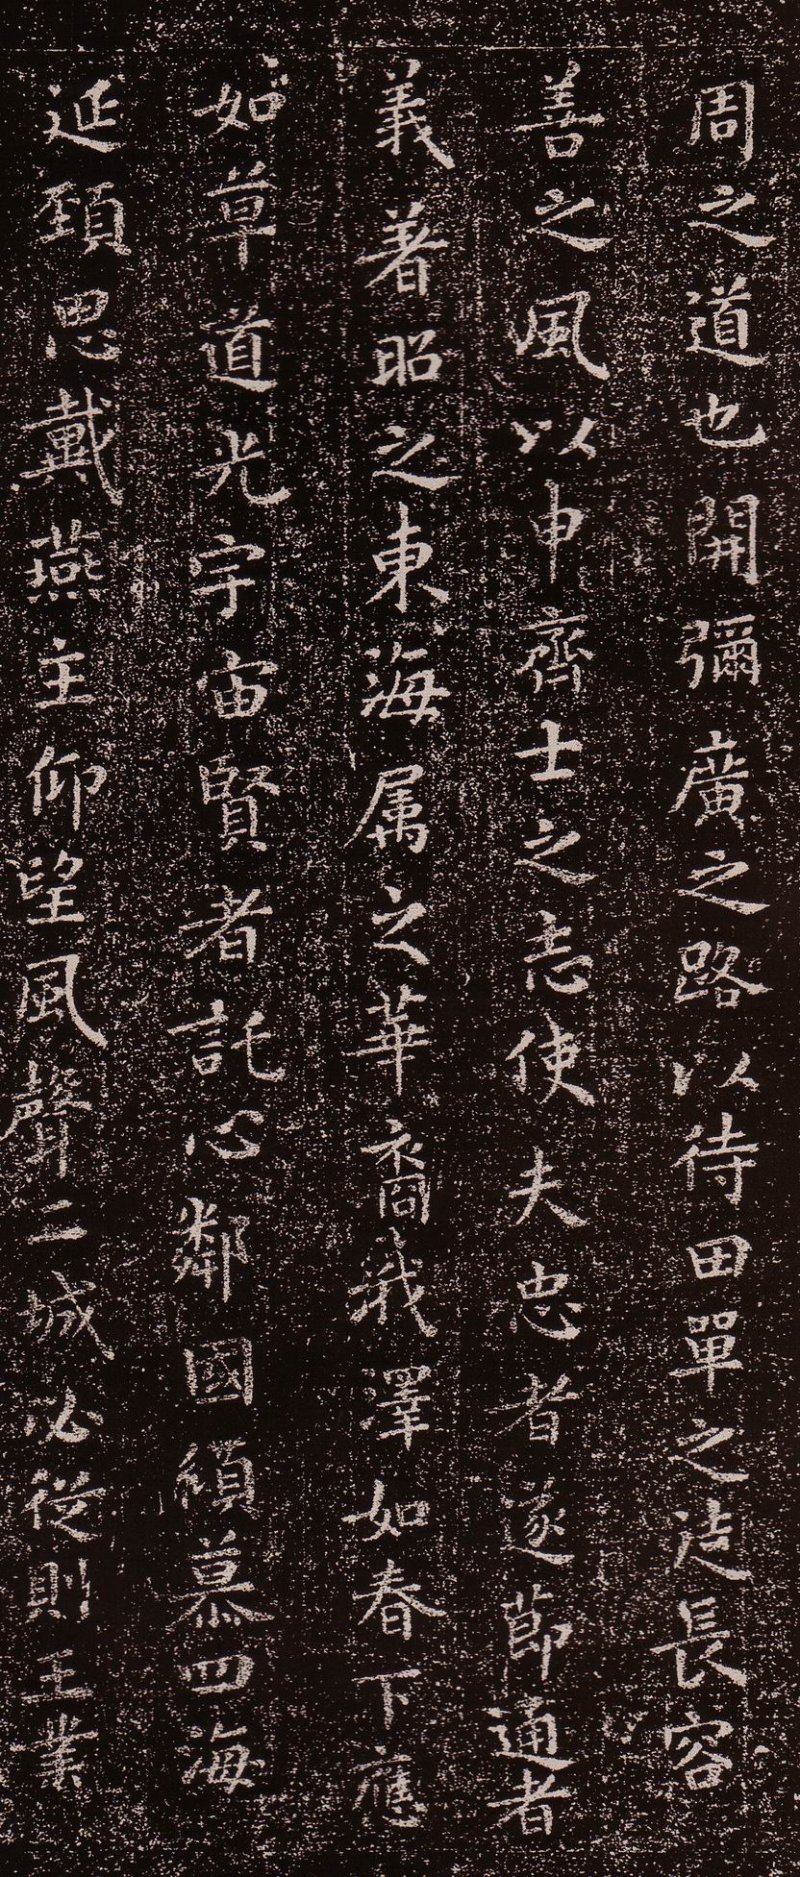 周之道也開彌廣之路以待田單之徒長容
善之風以申齊士之志使夫忠者遂節通者
義著昭之東海屬之華裔我澤如春下應
如草道光宇宙賢者託心鄰國傾慕四海
延頸思戴燕主仰望風聲二城必從則王業